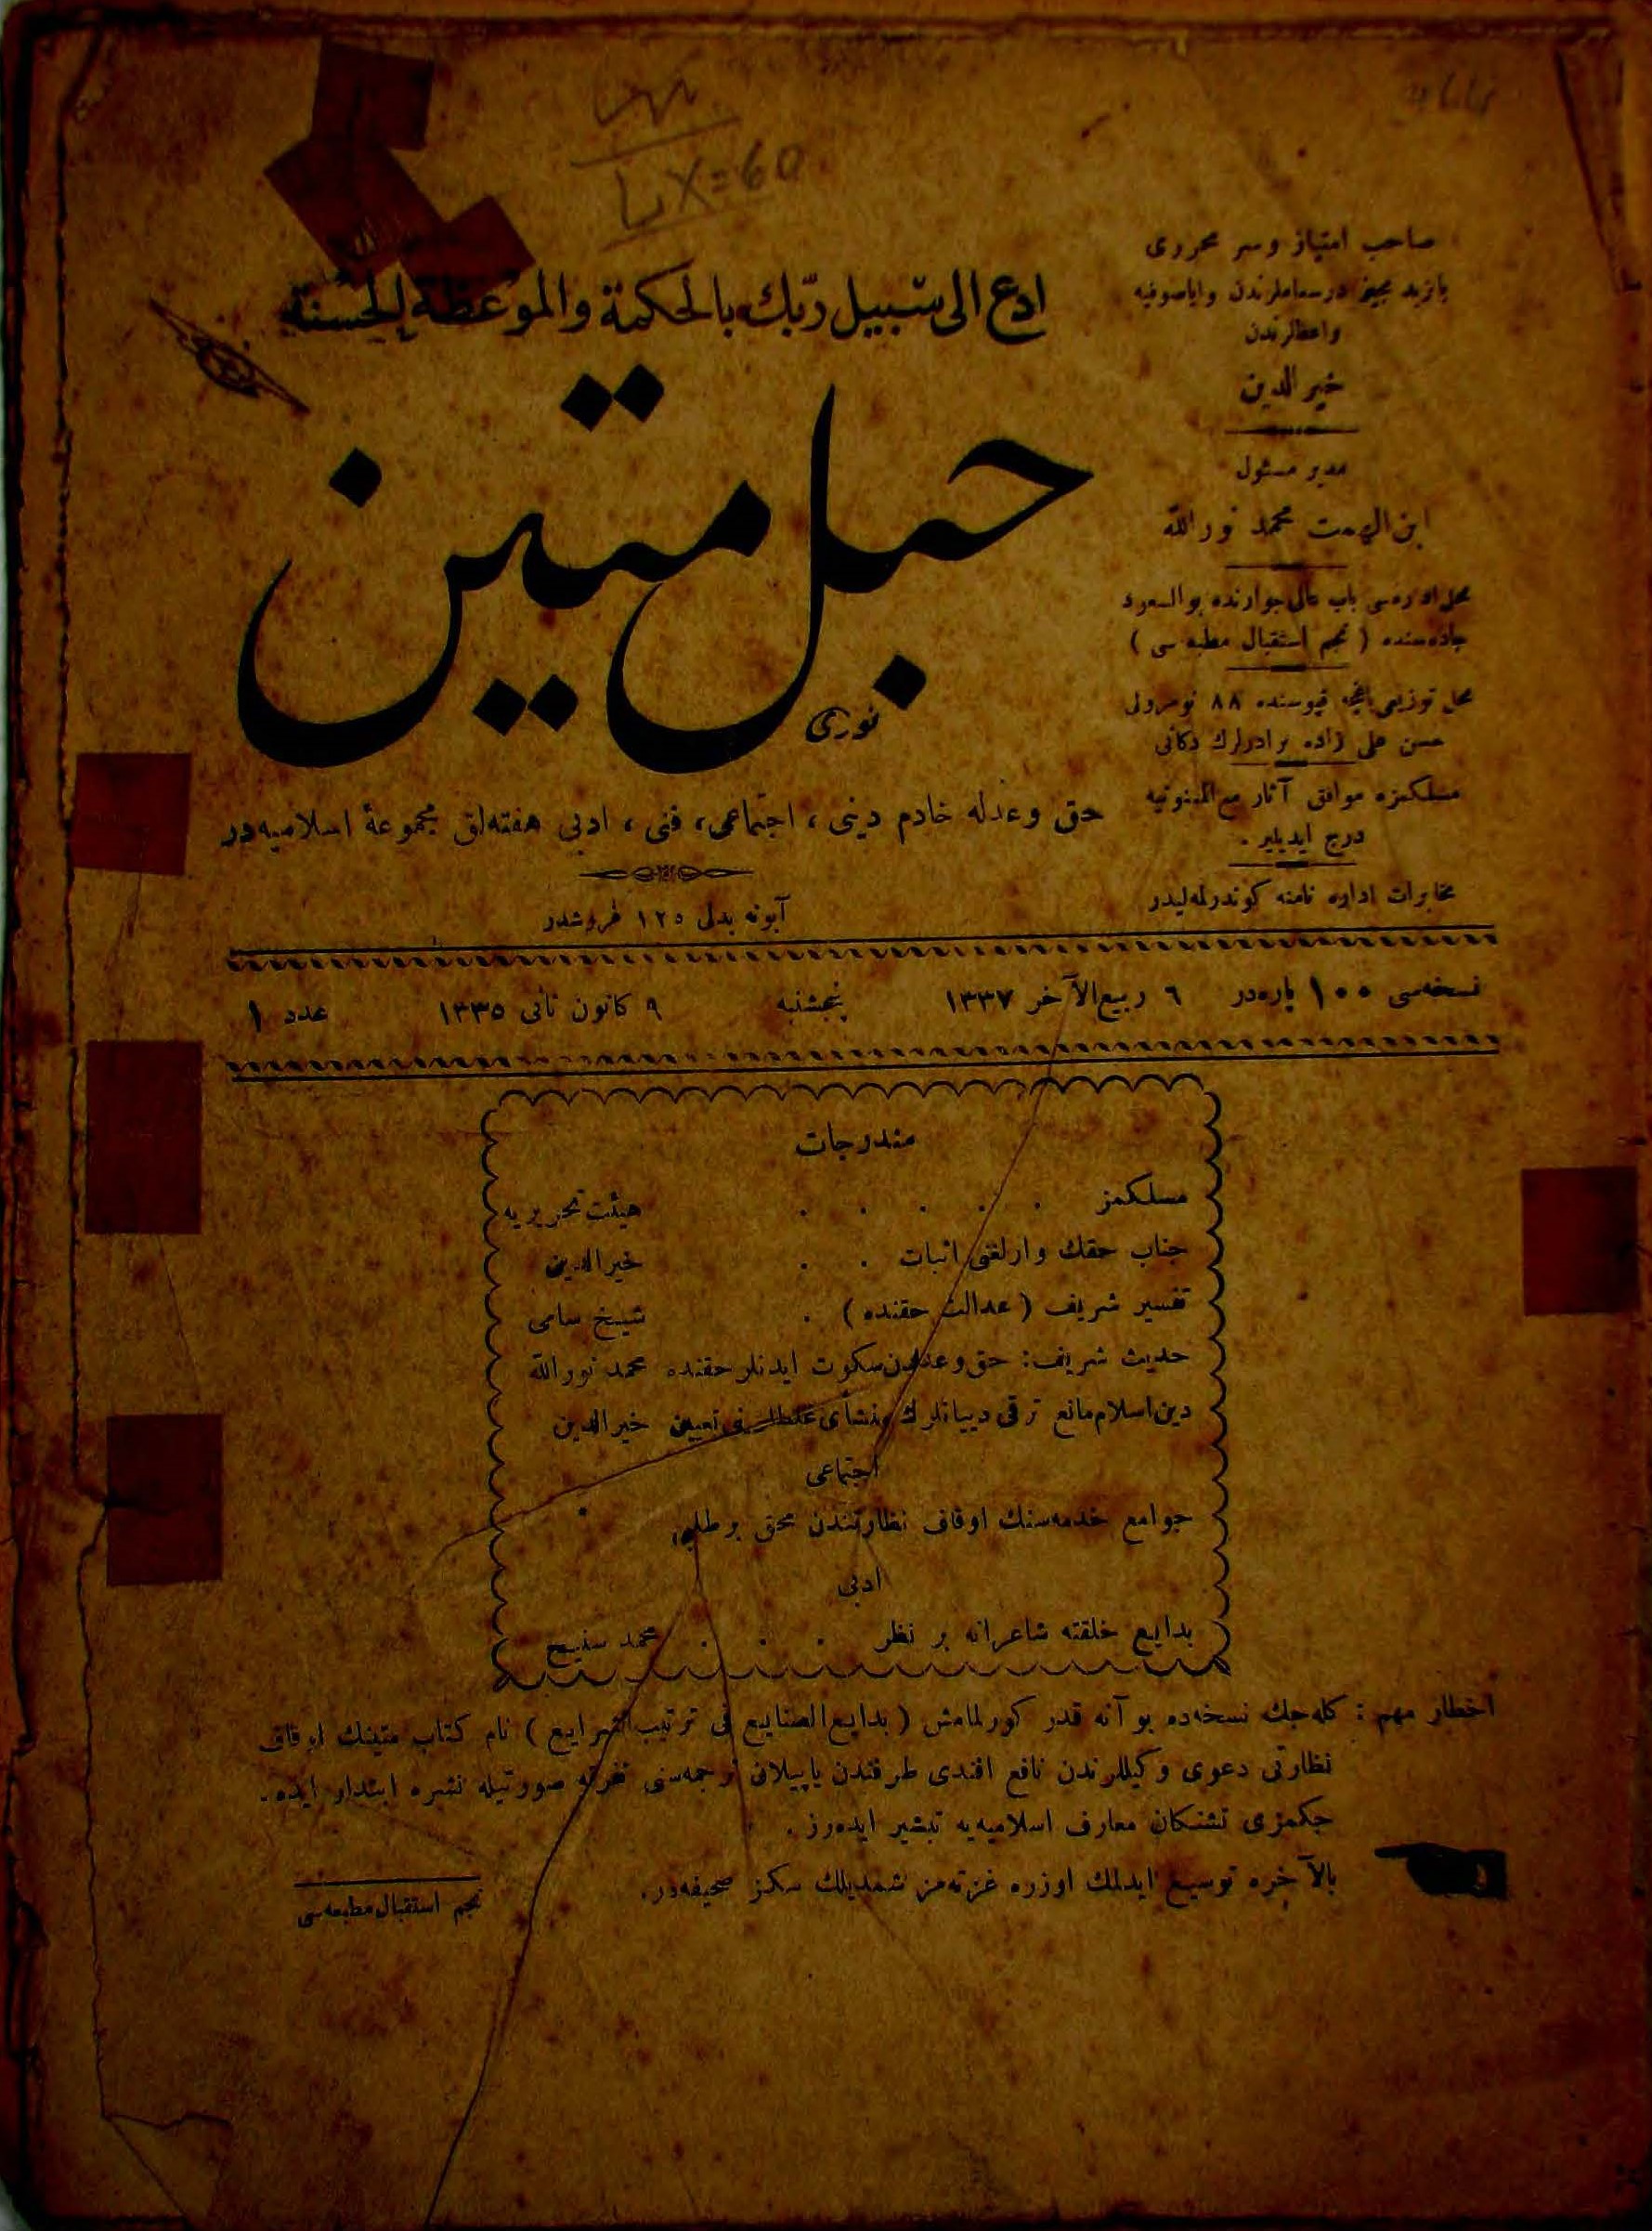 LX=60
ادع الى سبيل ربّك بالحكمة والموعظة الحسنة
حبل متین
نوری
حق و عدله خادم دینی ، اجتماعی ، فنی ، ادبی هفته‌لق مجموعهٔ اسلامیه‌در
آبونه بدلی ۱۲۵ غروشدر
صاحب امتیاز و سر محرری
بایزید درسعاملرندن و ایاصوفیه
واعظلرندن
خیر الدین
مدیر مسئول
ابن الهمت محمد نور الله
محل اداره‌سی باب عالی جوارنده بو السعود
جاده‌سنده ( نجم استقبال مطبعه سی )
محل توزیعی باغچه قپوسنده ۸۸ نومرولی
حسن علی زاده برادرلرك دكانی
مسلكمزه موافق آثار مع الممنونیه
درج ایدیلیر .
مخابرات اداره نامنه كوندرلمه‌لیدر
نسخه‌سی ۱۰۰ پاره‌در ٦ ربیع‌الآخر ۱۳۳۷ پنجشنبه ۹ كانون ثانی ۱۳۳۵ عدد ۱
مندرجات
مسلكمز . . . . . هیئت تحریریه
جناب حقك وارلغنی اثبات . . خیر الدین
تفسیر شریف ( عدالت حقنده ) . شیخ سامی
حدیث شریف : حق و عدلدن سكوت ایدنلر حقنده محمد نور الله
دین اسلام مانع ترقی دییانلرك منشأی غلطلرینی تعیین خیر الدین
اجتماعی
جوامع خدمه‌سنك اوقاف نظارتندن محق بر طلبی
ادبی
بدایع خلقته شاعرانه بر نظر . . . محمد سنیح
اخطار مهم : كله‌جك نسخه‌ده بو آنه قدر كورلمامش ( بدایع الصنایع فی ترتیب الشرایع ) نام كتاب متینك اوقاف
نظارتی دعوی وكیللرندن نافع افندی طرفندن یاپیلان ترجمه‌سنی تفرقه صورتیله نشره ابتدار ایده‌-
جكمزی تشنكان معارف اسلامیه‌یه تبشیر ایده‌رز .
بالآخره توسیع ایدلمك اوزره غزته‌مز شمدیلك سكز صحیفه‌در .
نجم استقبال مطبعه‌سی